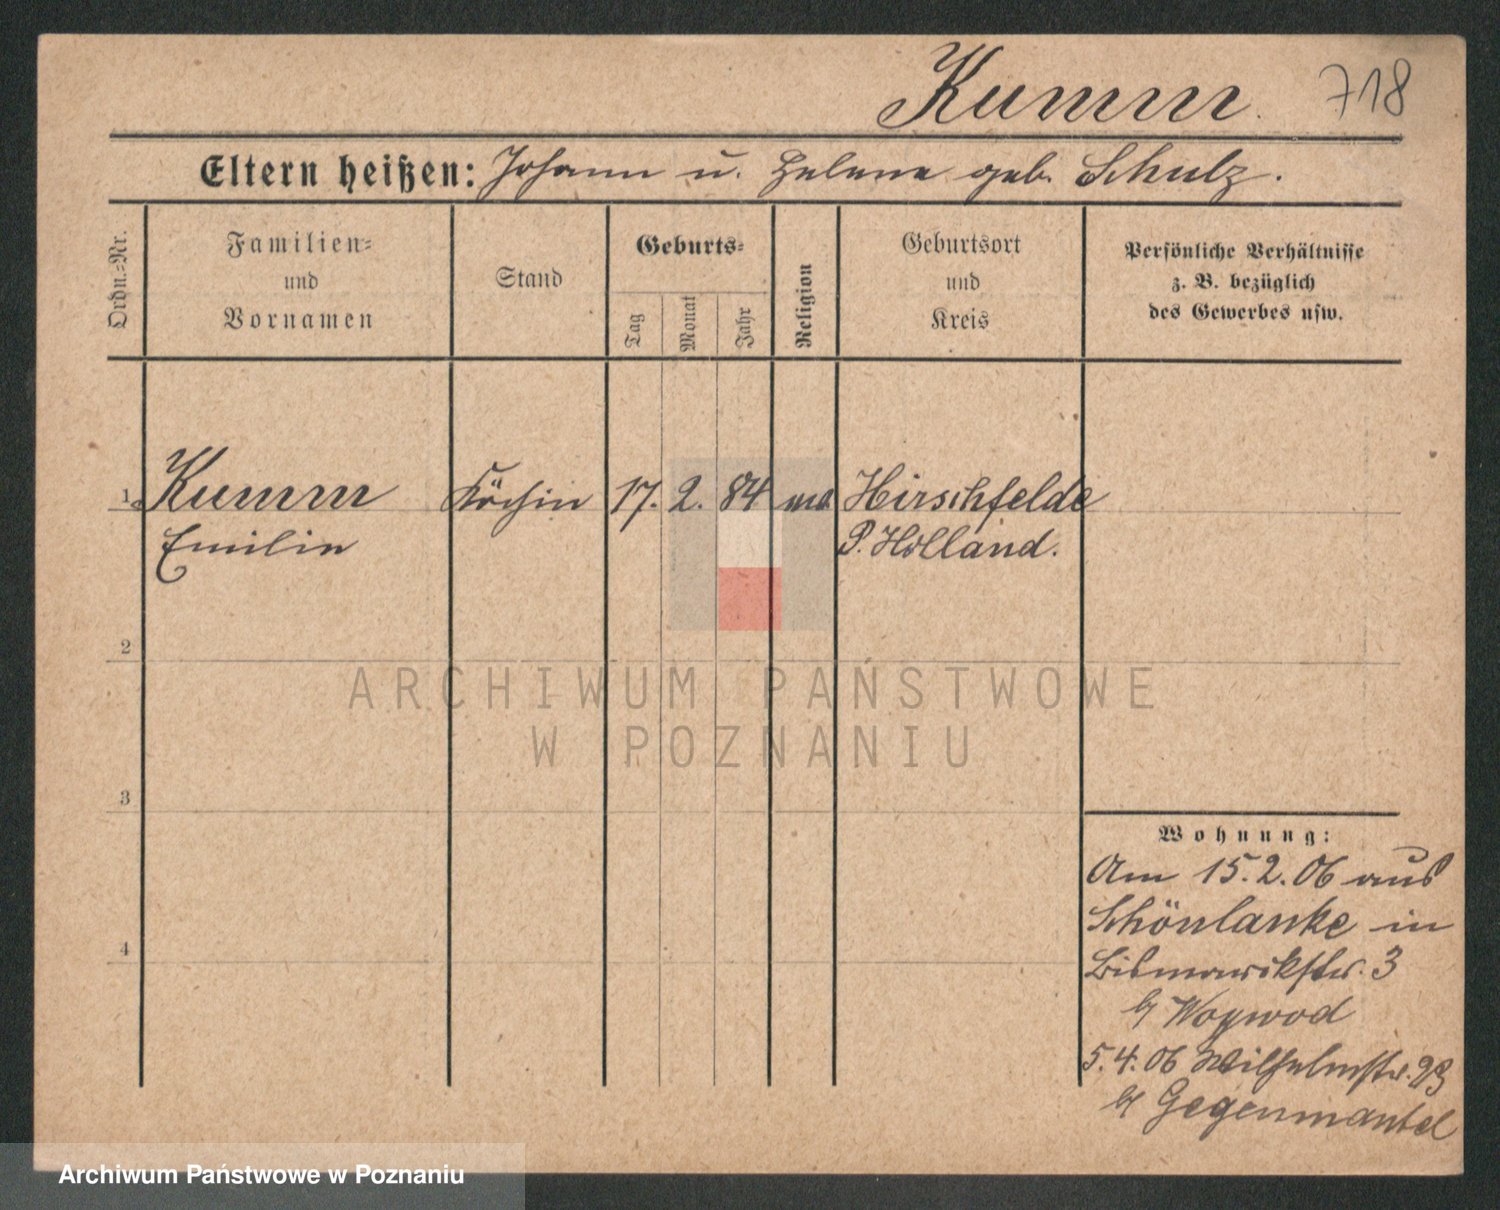 Kumm. 718
Eltern heißen: Johann u. Helene geb. Schulz.
Ordn.=Nr.
Familien=
und
Vornamen
Stand
Geburts=
Tag
Monat
Jahr
Religion
Geburtsort
und
Kreis
Persönliche Verhältnisse
z. B. bezüglich
des Gewerbes usw.
1 Kumm Köchin 17. 2. 84 Hirschfelde
Emilie P. Holland.
2
ARCHIWUM PAŃSTWOWE
W POZNANIU
3
4
Wohnung:
Am 15.2.06 aus
Schönlanke in
Bismarckstr. 3
b/ Woywod
5.4.06 Wilhelmstr. 23
b/ Gegenmantel
Archiwum Państwowe w Poznaniu